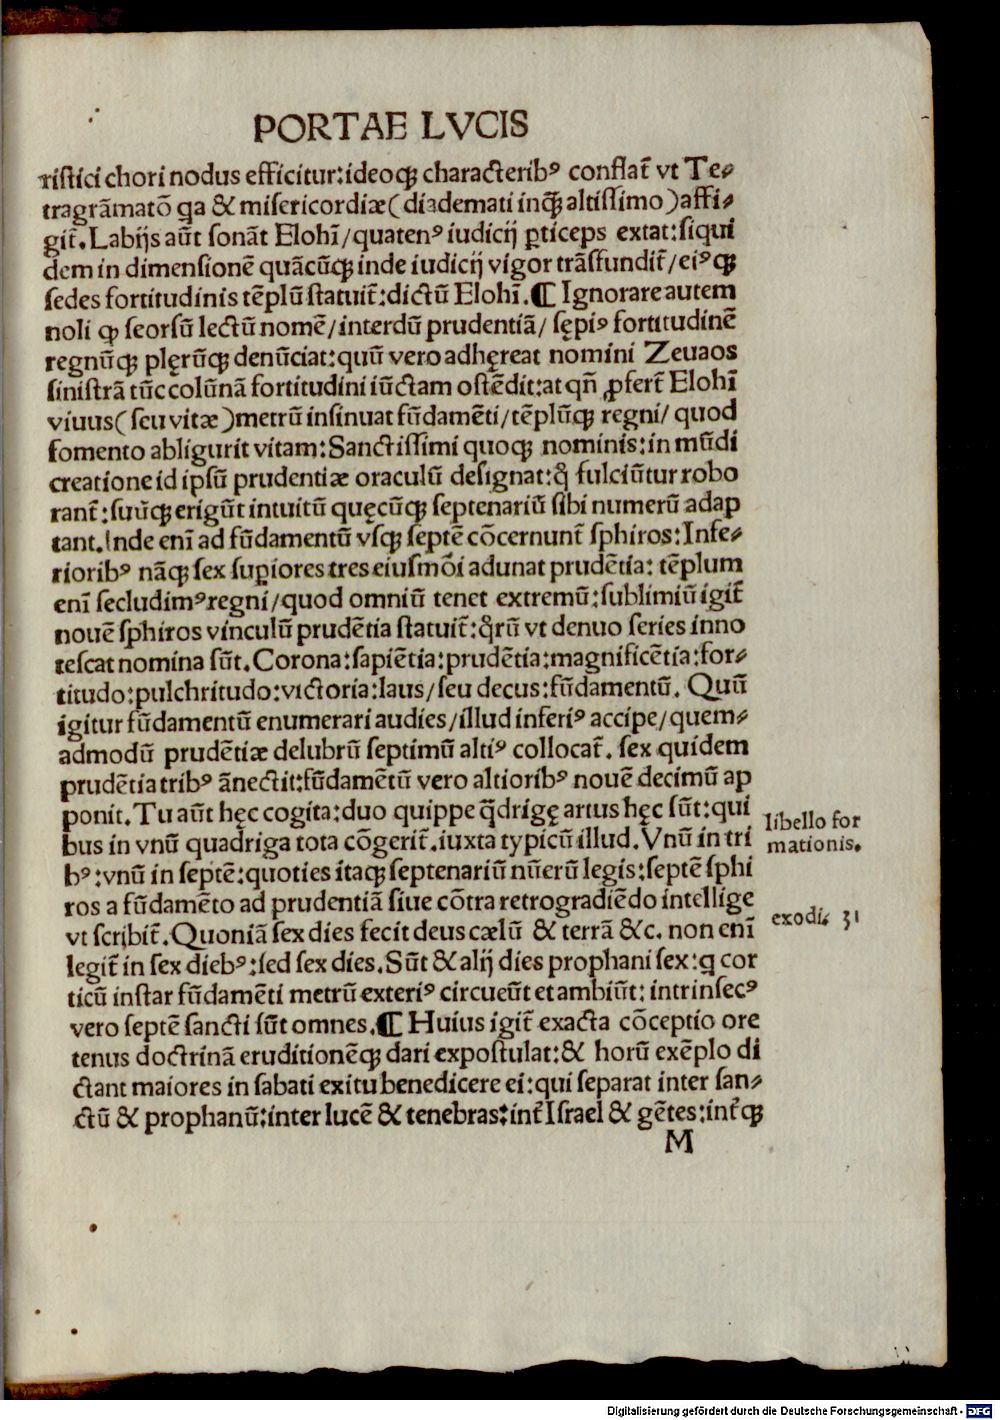 PORTAE LVCIS
ristici chori nodus efficitur:ideoqꝫ characteribꝰ conflat̃ vt Te⸗
tragrãmatõ qa & misericordiæ(diademati inqꝫ altissimo)affi⸗
git̃.Labijs aũt sonãt Elohĩ/quatenꝰ iudicij ꝑticeps extat:siqui
dem in dimensionẽ quãcũqꝫ inde iudicij vigor trãsfundit̃/eiꝰqꝫ
sedes fortitudinis tẽplũ statuit̃:dictũ Elohĩ.¶ Ignorare autem
noli ꝙ seorsũ lectũ nomẽ/interdũ prudentiã/ sępiꝰ fortitudinẽ
regnũqꝫ plęrũqꝫ denũciat:quũ vero adhęreat nomini Zeuaos
sinistrã tũc colũnã fortitudini iũctam ostẽdit:at qñ ꝓfert̃ Elohĩ
viuus(seu vitæ)metrũ insinuat fũdamẽti/tẽplũqꝫ regni/ quod
fomento abligurit vitam:Sanctissimi quoqꝫ nominis:in mũdi
creatione id ipsũ prudentiæ oraculũ designat:q̃ fulciũtur robo
rant̃:suũqꝫ erigũt intuitũ quęcũqꝫ septenariũ sibi numerũ adap
tant.Inde enĩ ad fũdamentũ vsqꝫ septẽ cõcernunt̃ sphiros:Infe⸗
rioribꝰ nãqꝫ sex suꝑiores tres eiusmõi adunat prudẽtia: tẽplum
enĩ secludimꝰregni/quod omniũ tenet extremũ:sublimiũ igit̃
nouẽ sphiros vinculũ prudẽtia statuit̃:q̃rũ vt denuo series inno
tescat nomina sũt.Corona:sapiẽtia:prudẽtia:magnificẽtia:for⸗
titudo:pulchritudo:victoria:laus/seu decus:fũdamentũ. Quũ
igitur fũdamentũ enumerari audies/illud inferiꝰ accipe/quem⸗
admodũ prudẽtiæ delubrũ septimũ altiꝰ collocat̃. sex quidem
prudẽtia tribꝰ ãnectit:fũdamẽtũ vero altioribꝰ nouẽ decimũ ap
ponit.Tu aũt hęc cogita:duo quippe q̃drigę artus hęc sũt:qui
bus in vnũ quadriga tota cõgerit̃.iuxta typicũ illud.Vnũ in tri
bꝰ:vnũ in septẽ:quoties itaqꝫ septenariũ nũerũ legis:septẽ sphi
ros a fũdamẽto ad prudentiã siue cõtra retrogradiẽdo intellige
vt scribit̃.Quoniã sex dies fecit deus cælũ & terrã &c. non enĩ
legit̃ in sex diebꝰ:sed sex dies.Sũt & alij dies prophani sex:q cor
ticũ instar fũdamẽti metrũ exteriꝰ circueũt et ambiũt: intrinsecꝰ
vero septẽ sancti sũt omnes.¶ Huius igit̃ exacta cõceptio ore
tenus doctrinã eruditionẽqꝫ dari expostulat:& horũ exẽplo di
ctant maiores in sabati exitu benedicere ei:qui separat inter san⸗
ctũ & prophanũ:inter lucẽ & tenebras:int̃ Israel & gẽtes:int̃qꝫ
M
libello for
mationis.
exodi. 31
Digitalisierung gefördert durch die Deutsche Forschungsgemeinschaft - DFG